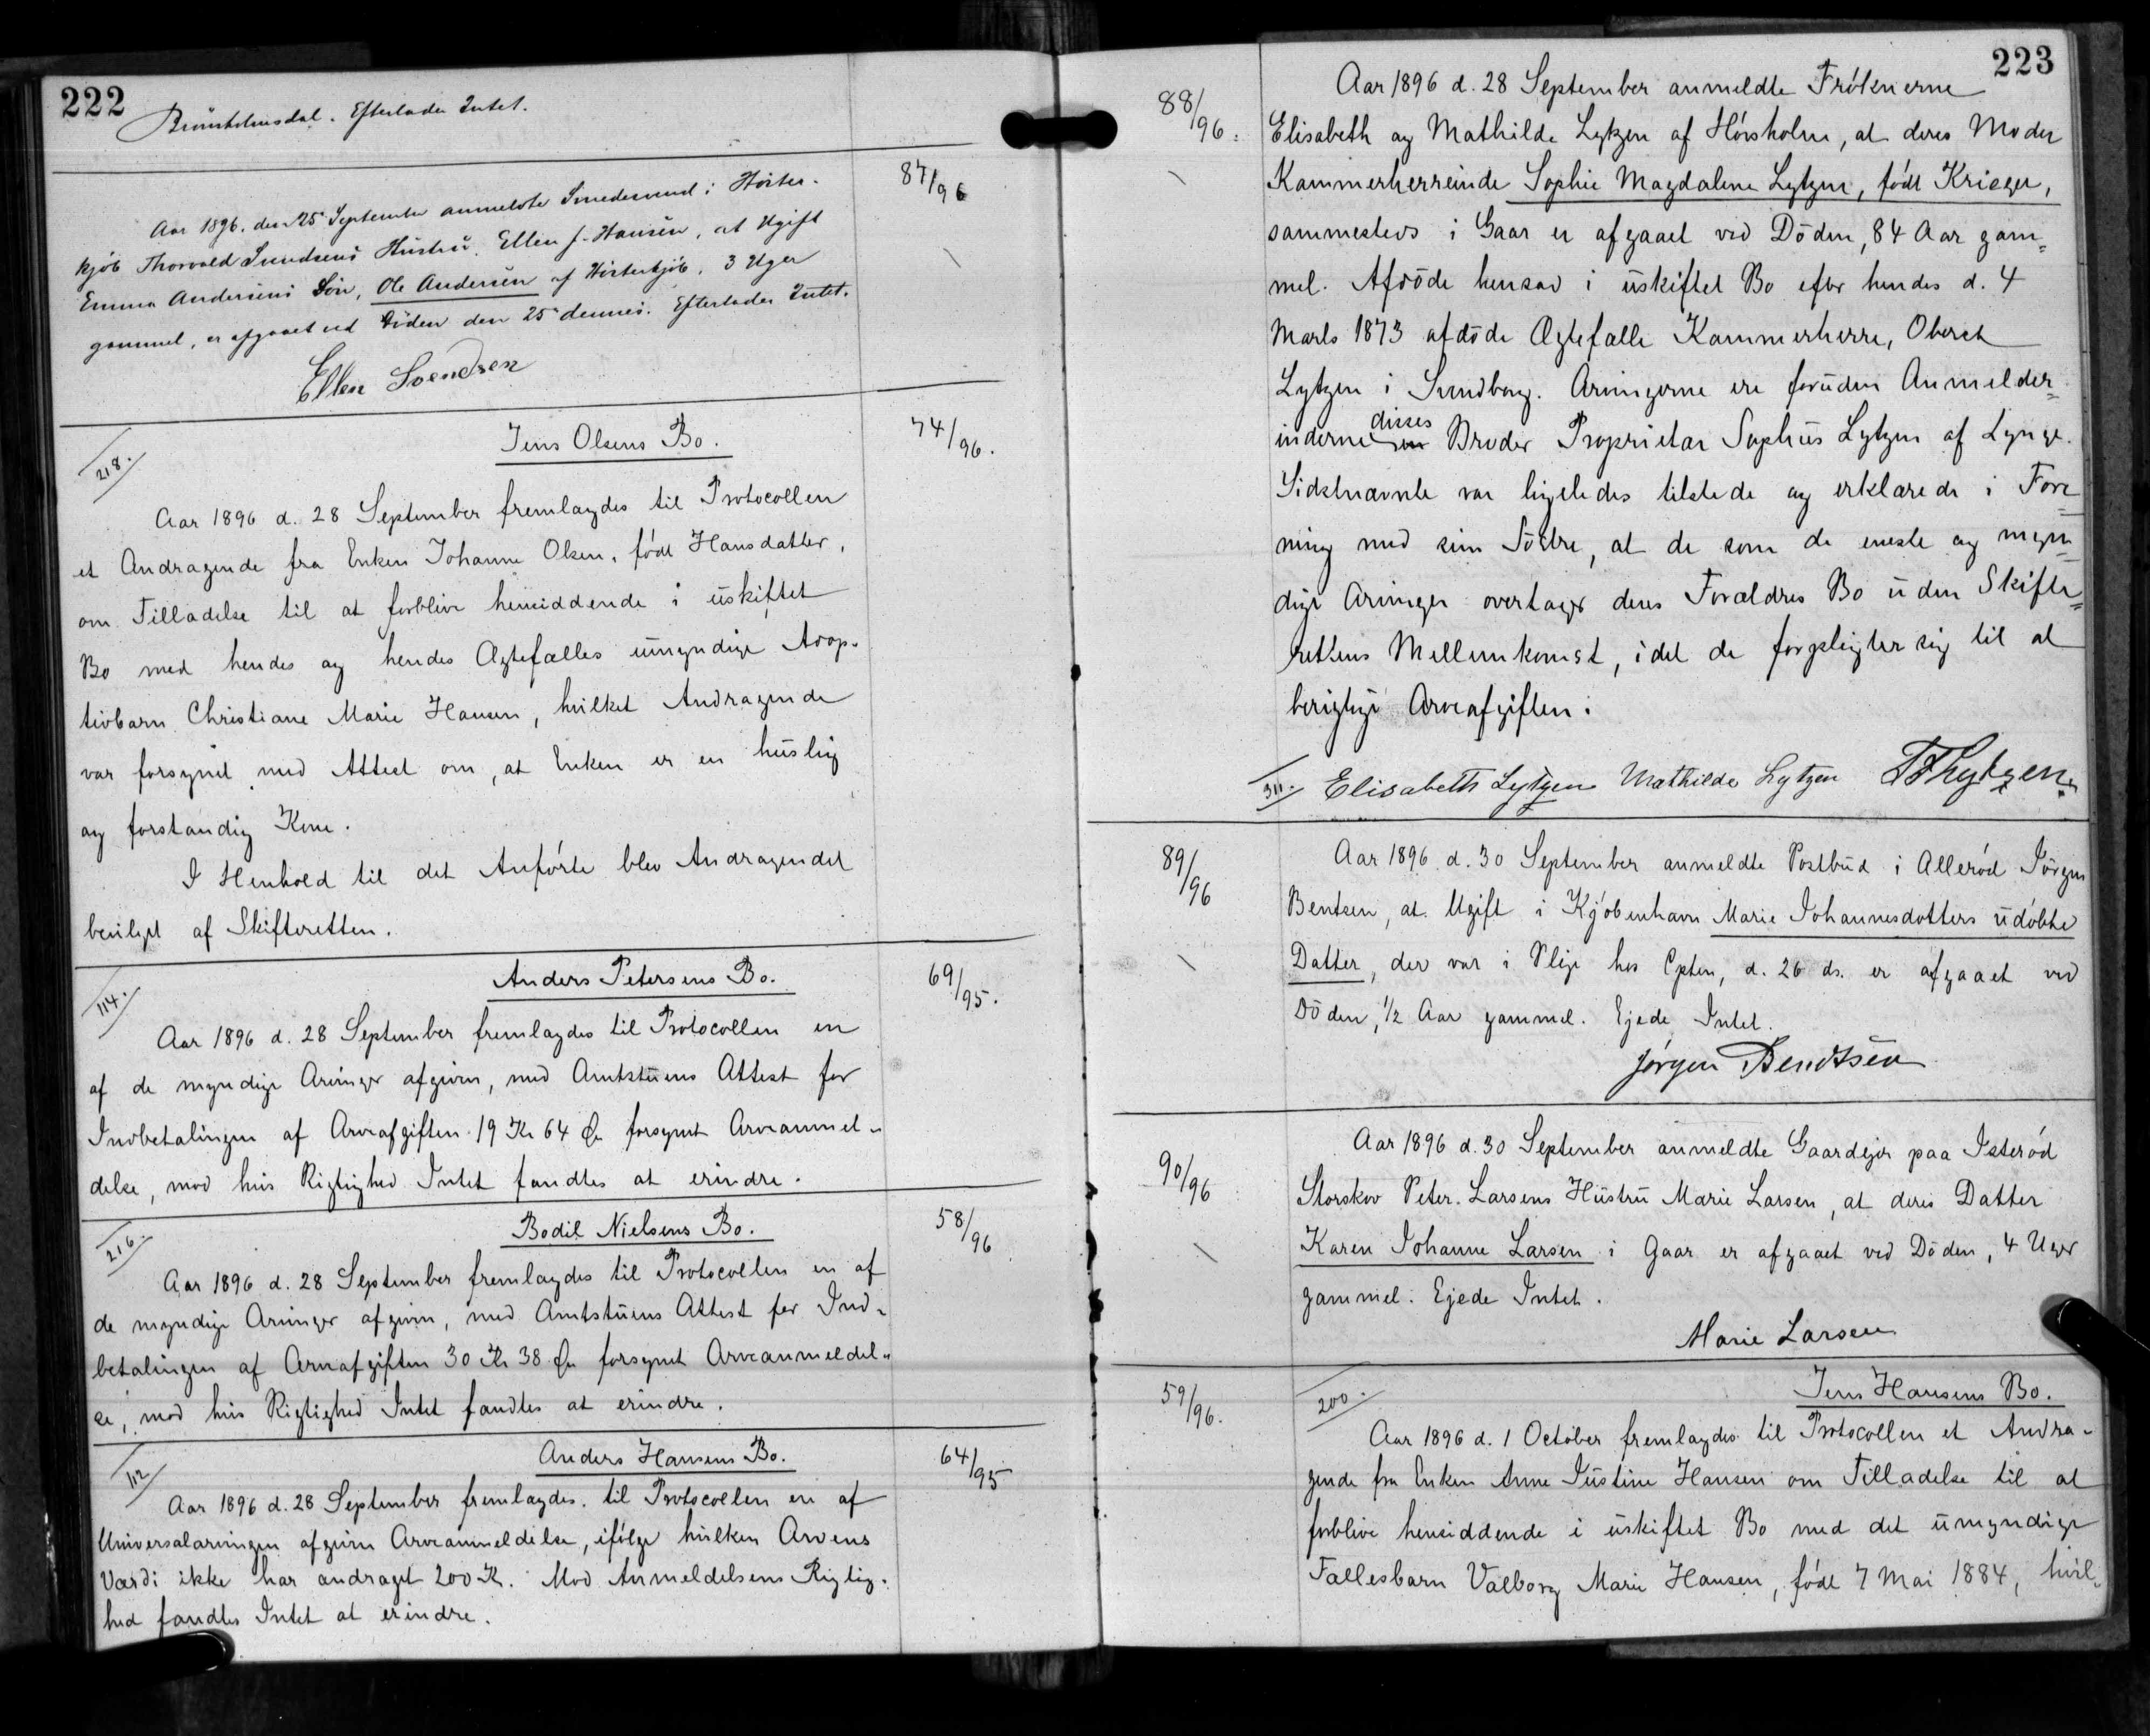 222
Brønsholmsdal. Efterlader Intet.
87/96
Aar 1896. den 25 September anmeldte Smedesvend i Høster-
kjøb Thorvald Svendsens Hustru, Ellen f. Hansen, at Ugift
Emma Andersens Søn, Ole Andersen af Høsterkjøb, 3 Uger
gammel, er afgaaet ved Døden den 25 dennes. Efterlader Intet.
Ellen Svendsen
218.
Jens Olsens Bo.
74/96.
Aar 1896 d. 28 September fremlagdes til Protocollen
et Andragende fra Enken Johanne Olsen, født Hansdatter,
om Tilladelse til at forblive hensiddende i uskiftet
Bo med hendes og hendes Ægtefælles umyndige Adop-
tivbarn Christiane Marie Hansen, hvilket Andragende
var forsynet med Attest om, at Enken er en huslig
og forstandig Kone.
I Henhold til det Anførte blev Andragendet
bevilget af Skifteretten.
114.
Anders Petersens Bo.
69/95.
Aar 1896 d. 28 September fremlagdes til Protocollen en
af de myndige Arvinger afgiven, med Amtstuens Attest for
Indbetalingen af Arveafgiften 19 Kr 64 Øre forsynet Arveanmel-
delse, mod hvis Rigtighed Intet fandtes at erindre.
216.
Bodil Nielsens Bo.
58/96
Aar 1896 d. 28 September fremlagdes til Protocollen en af
de myndige Arvinger afgiven, med Amtstuens Attest for Ind-
betalingen af Arveafgiften 30 Kr 38 Øre forsynet Arveanmeldel-
se, mod hvis Rigtighed Intet fandtes at erindre.
112
Anders Hansens Bo.
64/95
Aar 1896 d. 28 September fremlagdes til Protocollen en af
Universalarvingen afgiven Arveanmeldelse, ifølge hvilken Arvens
Værdi ikke har andraget 200 Kr. Mod Anmeldelsens Rigtig-
hed fandtes Intet at erindre.
223
88/96.
Aar 1896 d. 28 September anmeldte Frøknerne
Elisabeth og Mathilde Lytzen af Hørsholm, at deres Moder
Kammerherreinde Sophie Magdalene Lytzen, født Krieger,
sammesteds i Gaar er afgaaet ved Døden, 84 Aar gam=
mel. Afdøde hensad i uskiftet Bo efter hendes d. 4
Marts 1873 afdøde Ægtefælle Kammerherre, Oberst
Lytzen i Svendborg. Arvingerne ere foruden Anmelder=
inderne disses Broder Proprietær Sophus Lytzen af Lynge.
Sidstnævnte var ligeledes tilstede og erklærede i Fore
ning med sine Søstre, at de som de eneste og myn=
dige Arvinger overtager deres Forældres Bo uden Skifte=
rettens Mellemkomst, idet de forpligter sig til at
berigtige Arveafgiften.
311. Elisabeth Lytzen Mathilde Lytzen Lytzen
89/96
Aar 1896 d. 30 September anmeldte Postbud i Allerød Jørgen
Bentsen, at Ugift i Kjøbenhavn Marie Johannesdotters udøbte
Datter, der var i Pleje hos Cpten, d. 26 ds. er afgaaet ved
Døden, 1/2 Aar gammel. Ejede Intet.
Jørgen Bendtsen
90/96
Aar 1896 d. 30 September anmeldte Gaardejer paa Isterød
Storskov Peter Larsens Hustru Marie Larsen, at deres Datter
Karen Johanne Larsen i Gaar er afgaaet ved Døden, 4 Uger
gammel. Ejede Intet.
Marie Larsen
59/96.
200.
Jens Hansens Bo.
Aar 1896 d. 1 October fremlagdes til Protocollen et Andra-
gende fra Enken Anne Justine Hansen om Tilladelse til at
forblive hensiddende i uskiftet Bo med det umyndige
Fællesbarn Valborg Marie Hansen, født 7 Mai 1884, hvil-